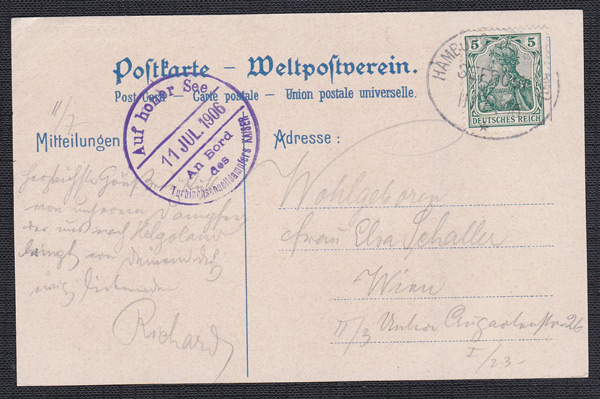 Postkarte – Weltpostverein.
Post Card – Carte postale – Union postale universelle.
Mitteilungen
Adresse:
5 5
DEUTSCHES REICH
HAMBURG
SEEPOST
Auf hoher See
11 JUL. 1906
An Bord
des
Turbinenschnelldampfers KAISER
11/7
Herzlichste Grüße
von unserem Dampfer
der uns nach Helgoland
bringt von Deinem Dich
ewig liebenden
Richard
Wohlgeboren
Frau Elsa Schaller
Wien
II/3 Untere Augartenstr 26
I/23.